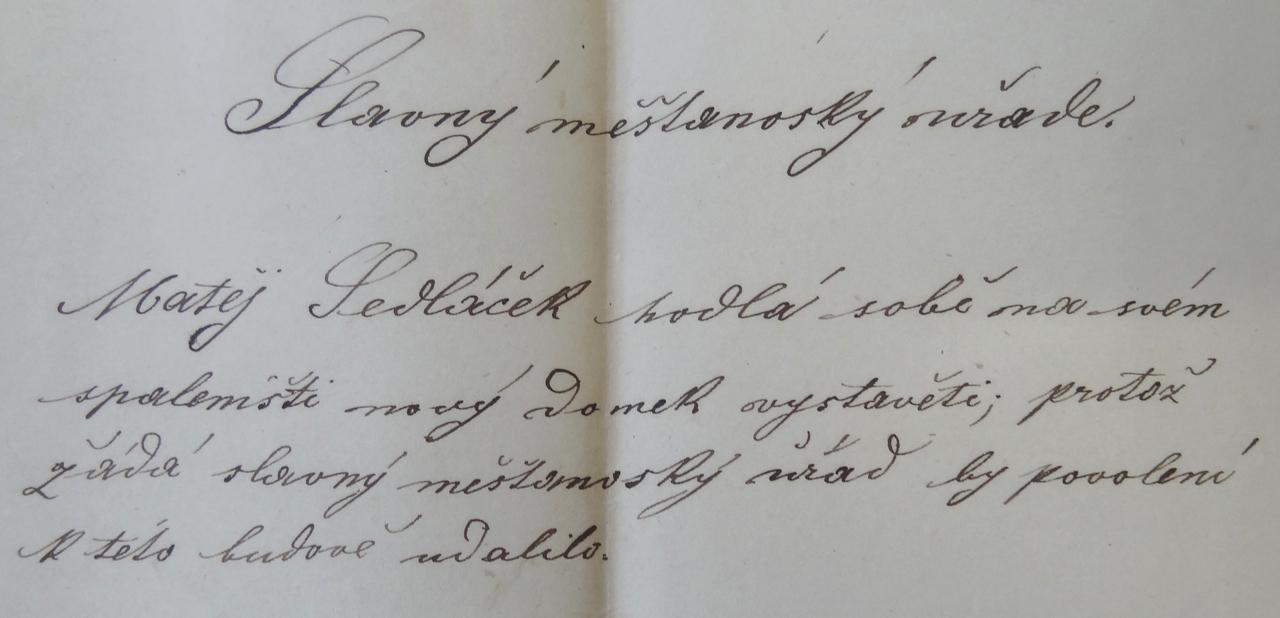 Slavný měšťanoský uřade.
Matěj Sedláček hodlá sobě na svém
spalemšti nový domek vystavěti; protož
žádá slavný měšťanoský uřád by povolení
k této budově udalilo.